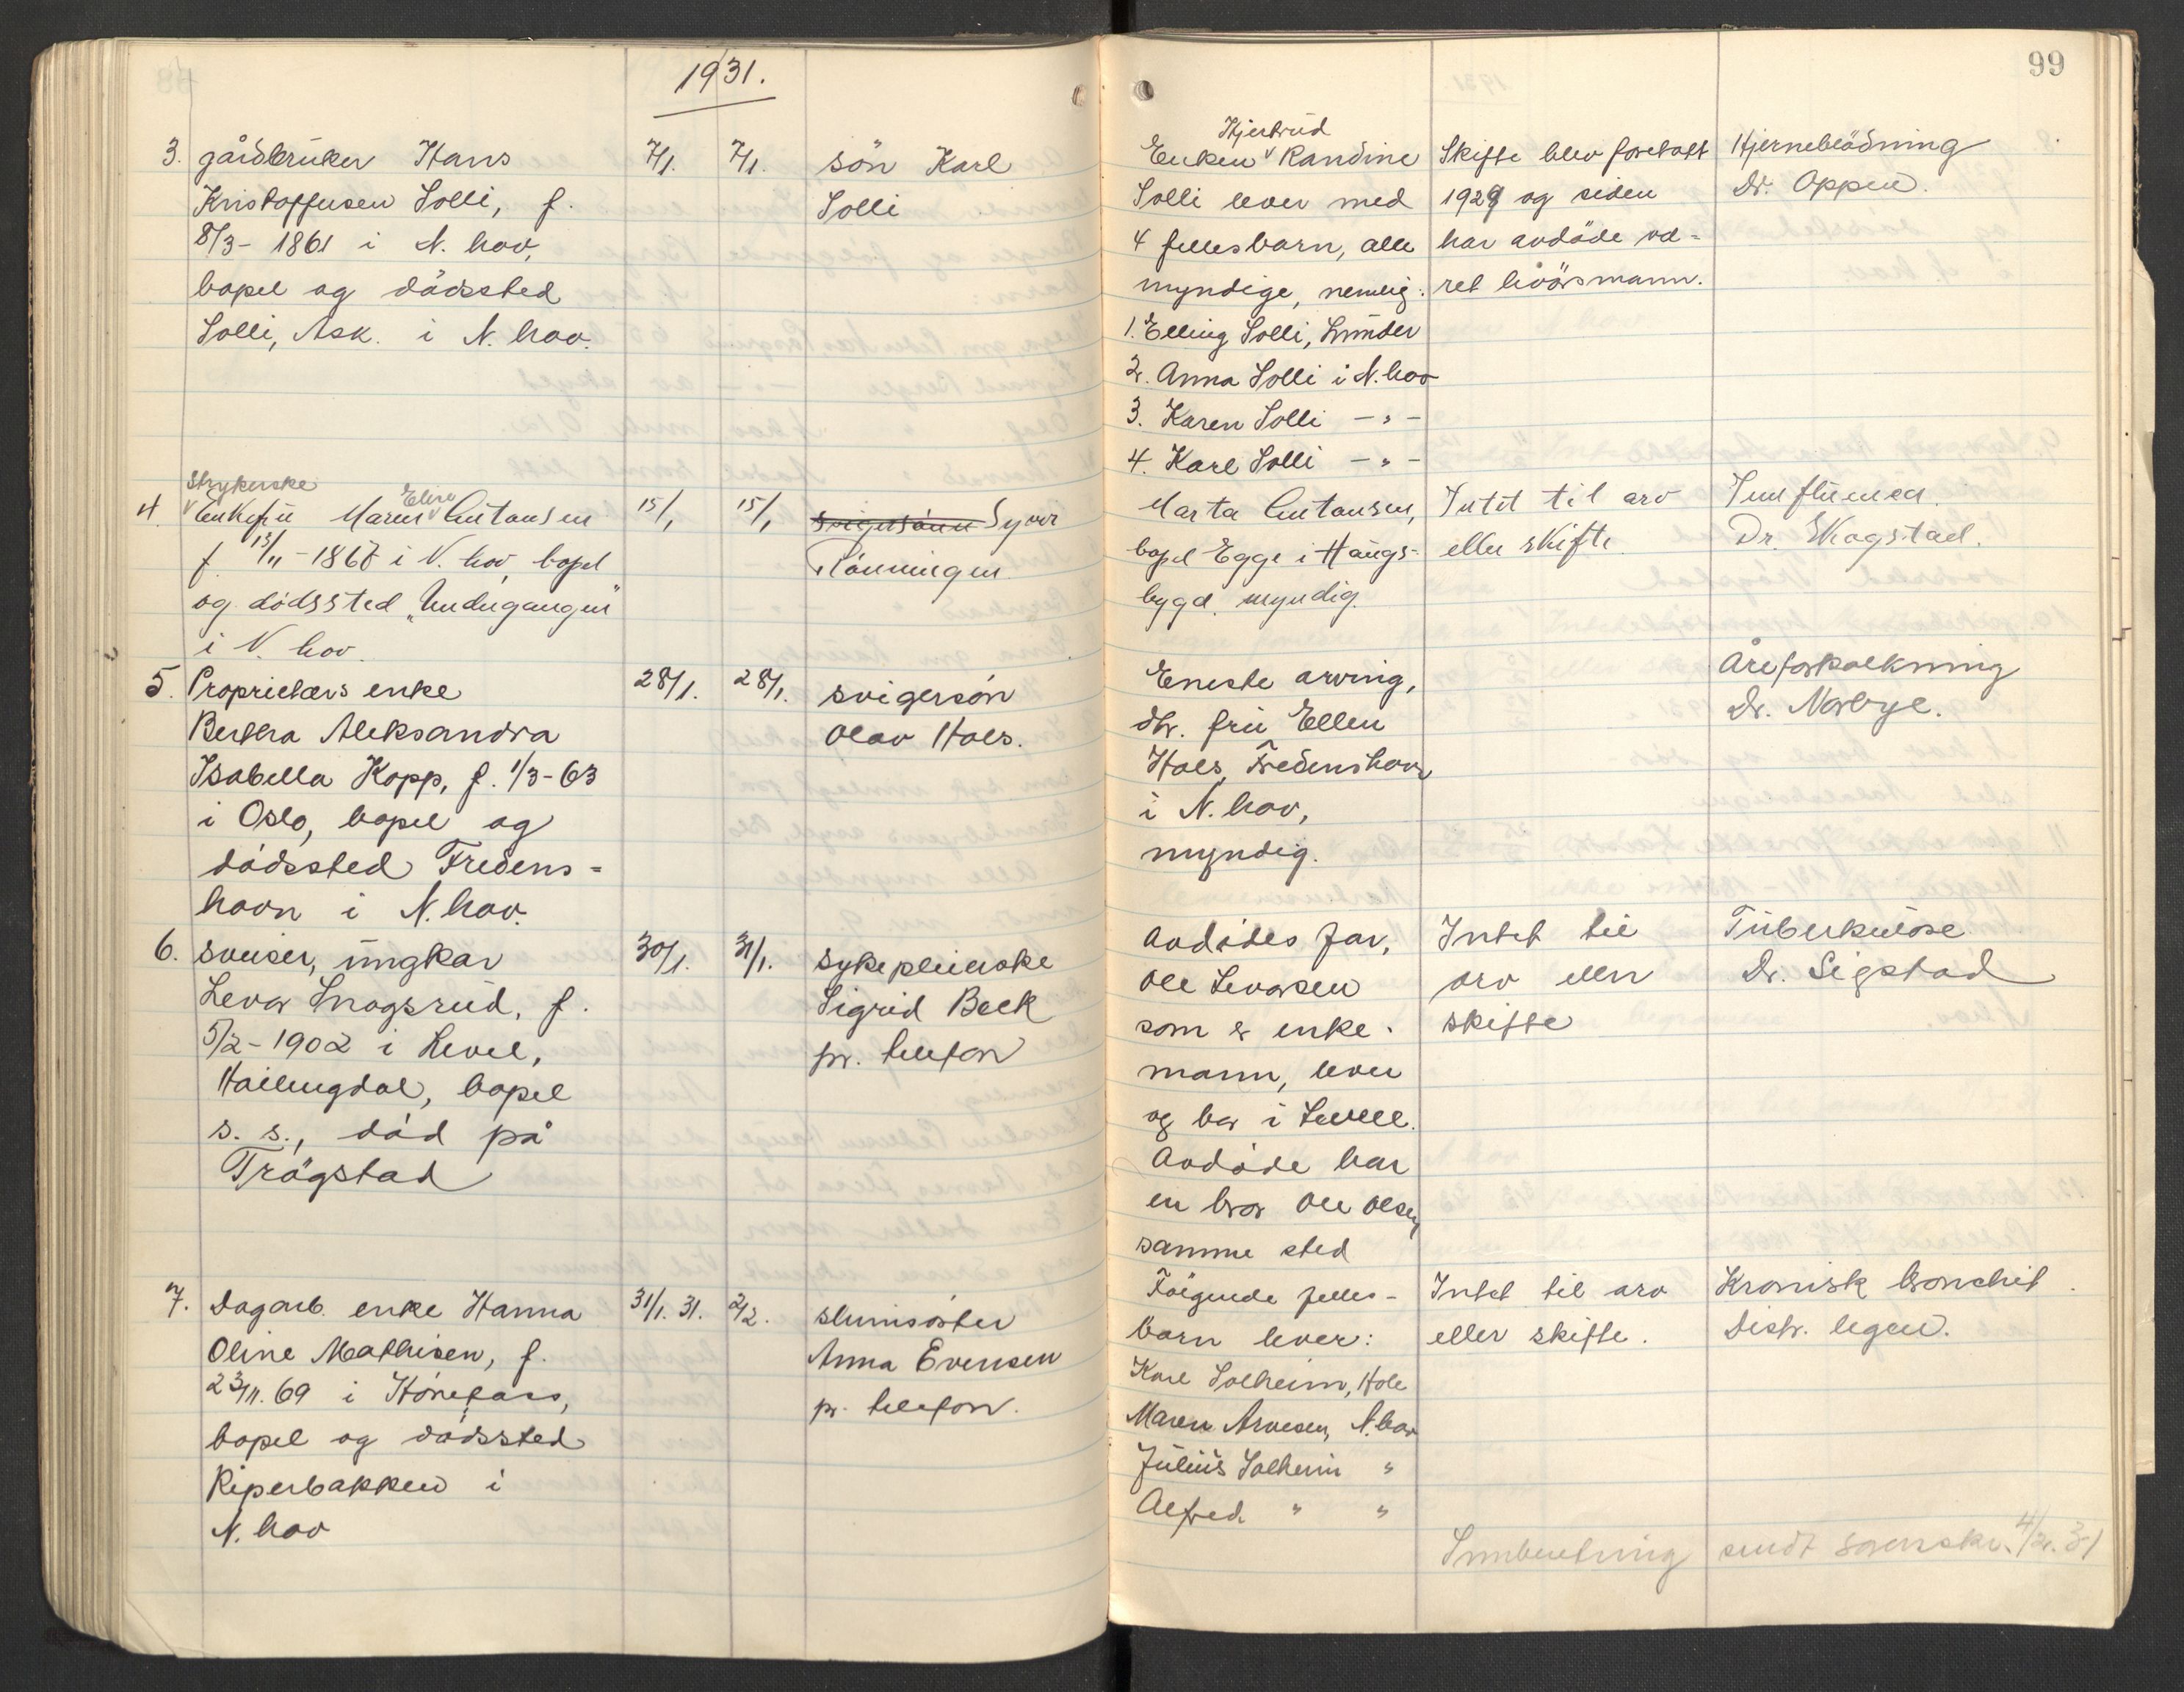 1931.
99
3. gårdbruker Hans
Kristoffersen Solli, f.
8/3- 1861 i N. hov,
bopel og dödssted
Solli, Ask. i N. hov.
7/1. 7/1.
sön Karl
Solli
Hjertrud
Enken Randine
Solli lever med
4 fellesbarn, alle
myndige, nemlig:
1. Elling Solli, Lunder
2. Anna Solli i N. hov
3. Karen Solli - " -
4. Karl Solli - " -
Skifte blev foretatt
1929 og siden
har avdöde væ-
ret livörsmann.
Hjerneblödning
Dr. Oppen.
4. Strykerske
Enkefru Maren Elise Antonsen
f. 13/11 - 1867 i N. hov, bopel
og dödssted "Undergangen"
i N. hov.
15/1 15/1
svigersönn Syver
Rönningen.
Marta Antonsen,
bopel Egge i Haugs-
bygd. myndig.
Intet til arv
eller skifte.
Influenca.
Dr. Skogstad.
5. Proprietærs enke
Bertha Aleksandra
Isabella Kopp, f. 1/3-63
i Oslo, bopel og
dödssted Fredens-
havn i N. hov.
28/1. 28/1.
svigersön
Olav Hals.
Eneste arving,
dtr. fru Ellen
Hals, Fredenshavn
i N. hov,
myndig.
Åreforkalkning
Dr. Norbye.
6. sveiser, ungkar
Levor Snogsrud, f.
5/2 - 1902 i Level,
Hallingdal, bopel
s. s., död på
Trögstad
30/1. 31/1.
sykepleierske
Sigrid Beck
pr. telefon
Avdödes far,
Ole Levorsen
som er enke-
mann, lever
og bor i Level.
Avdöde har
en bror Ole Olsen,
samme sted
Intet til
arv eller
skifte
Tuberkulose
Dr. Sigstad
7. Dagarb. enke Hanna
Oline Mathisen, f.
23/11. 69 i Hönefoss,
bopel og dödssted
Riperbakken i
N. hov
31/1. 31. 2/2.
slumsöster
Anna Evensen
pr. telefon.
Fölgende felles-
barn lever:
Karl Solheim, Hole
Maren Arnesen, N. hov
Julius Solheim "
Alfred " "
Intet til arv
eller skifte.
Kronisk bronchit.
Distr. legen.
Innberetning sendt sorenskr. 4/2. 31